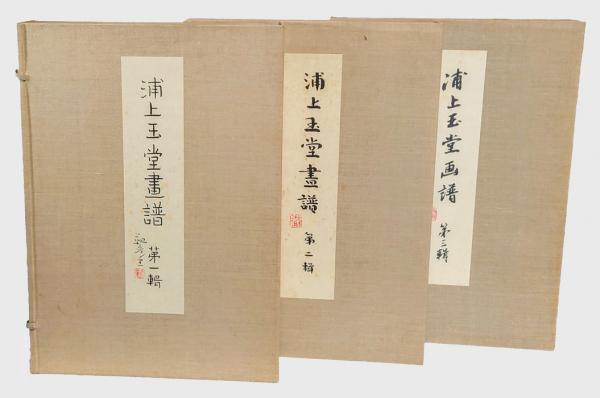 浦上玉堂畫譜
第一輯
浦上玉堂畫譜
第二輯
浦上玉堂画譜
第三輯